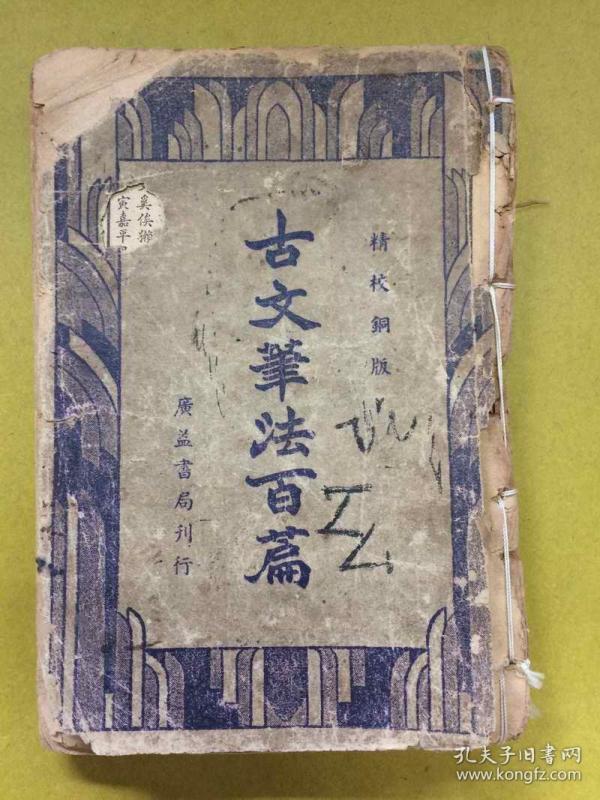 精校銅版
古文筆法百篇
廣益書局刊行
奚侯獬
寅嘉平
孔夫子旧书网
www.kongfz.com